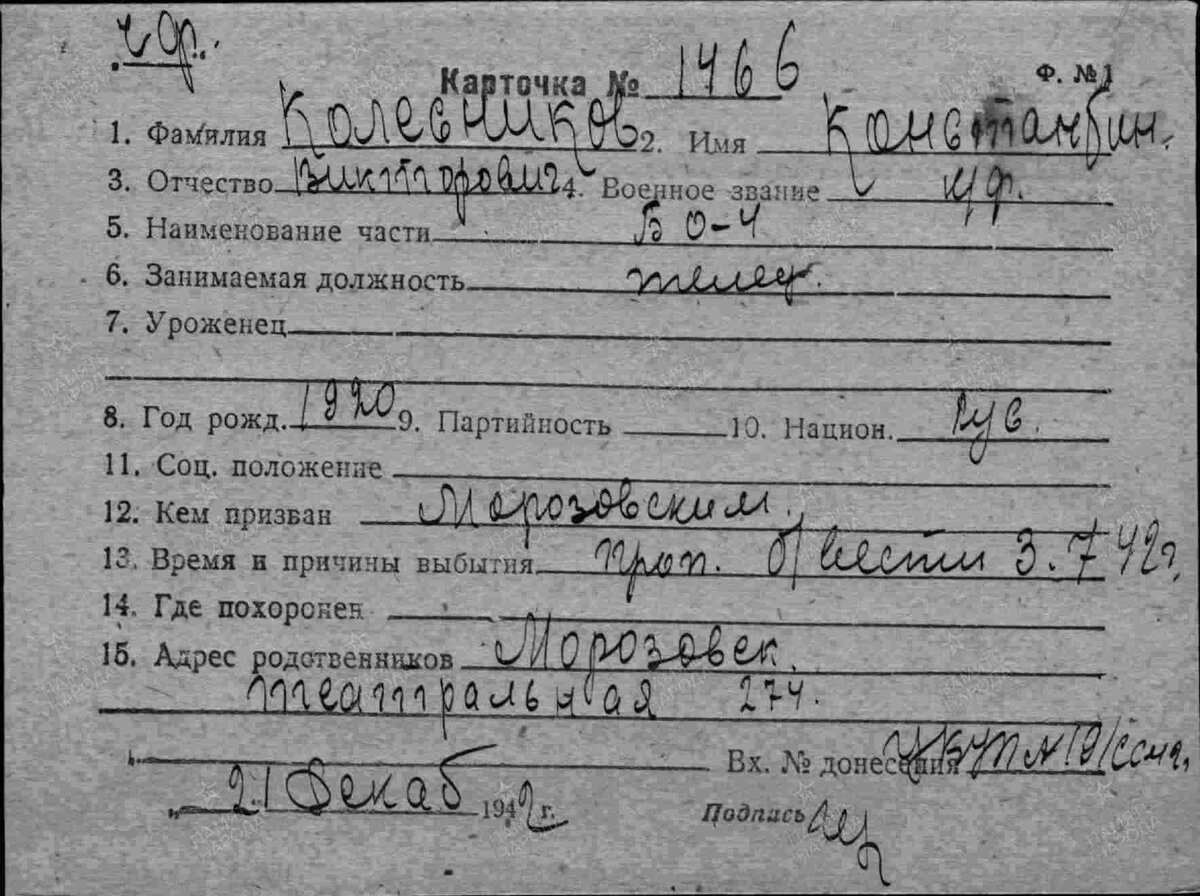 ч ф.
Карточка № 1466 Ф. № 1
1. Фамилия Колесников 2. Имя Константин.
3. Отчество Викторович 4. Военное звание ч/ф.
5. Наименование части БО-4
6. Занимаемая должность телег.
7. Уроженец
8. Год рожд. 1920 9. Партийность 10. Национ. Рус.
11. Соц. положение
12. Кем призван Морозовским.
13. Время и причины выбытия проп. б/вести 3.7 42г.
14. Где похоронен
15. Адрес родственников Морозовск.
театральная 274.
Вх. № донесения
„ 21 Декаб 1942 г. Подпись